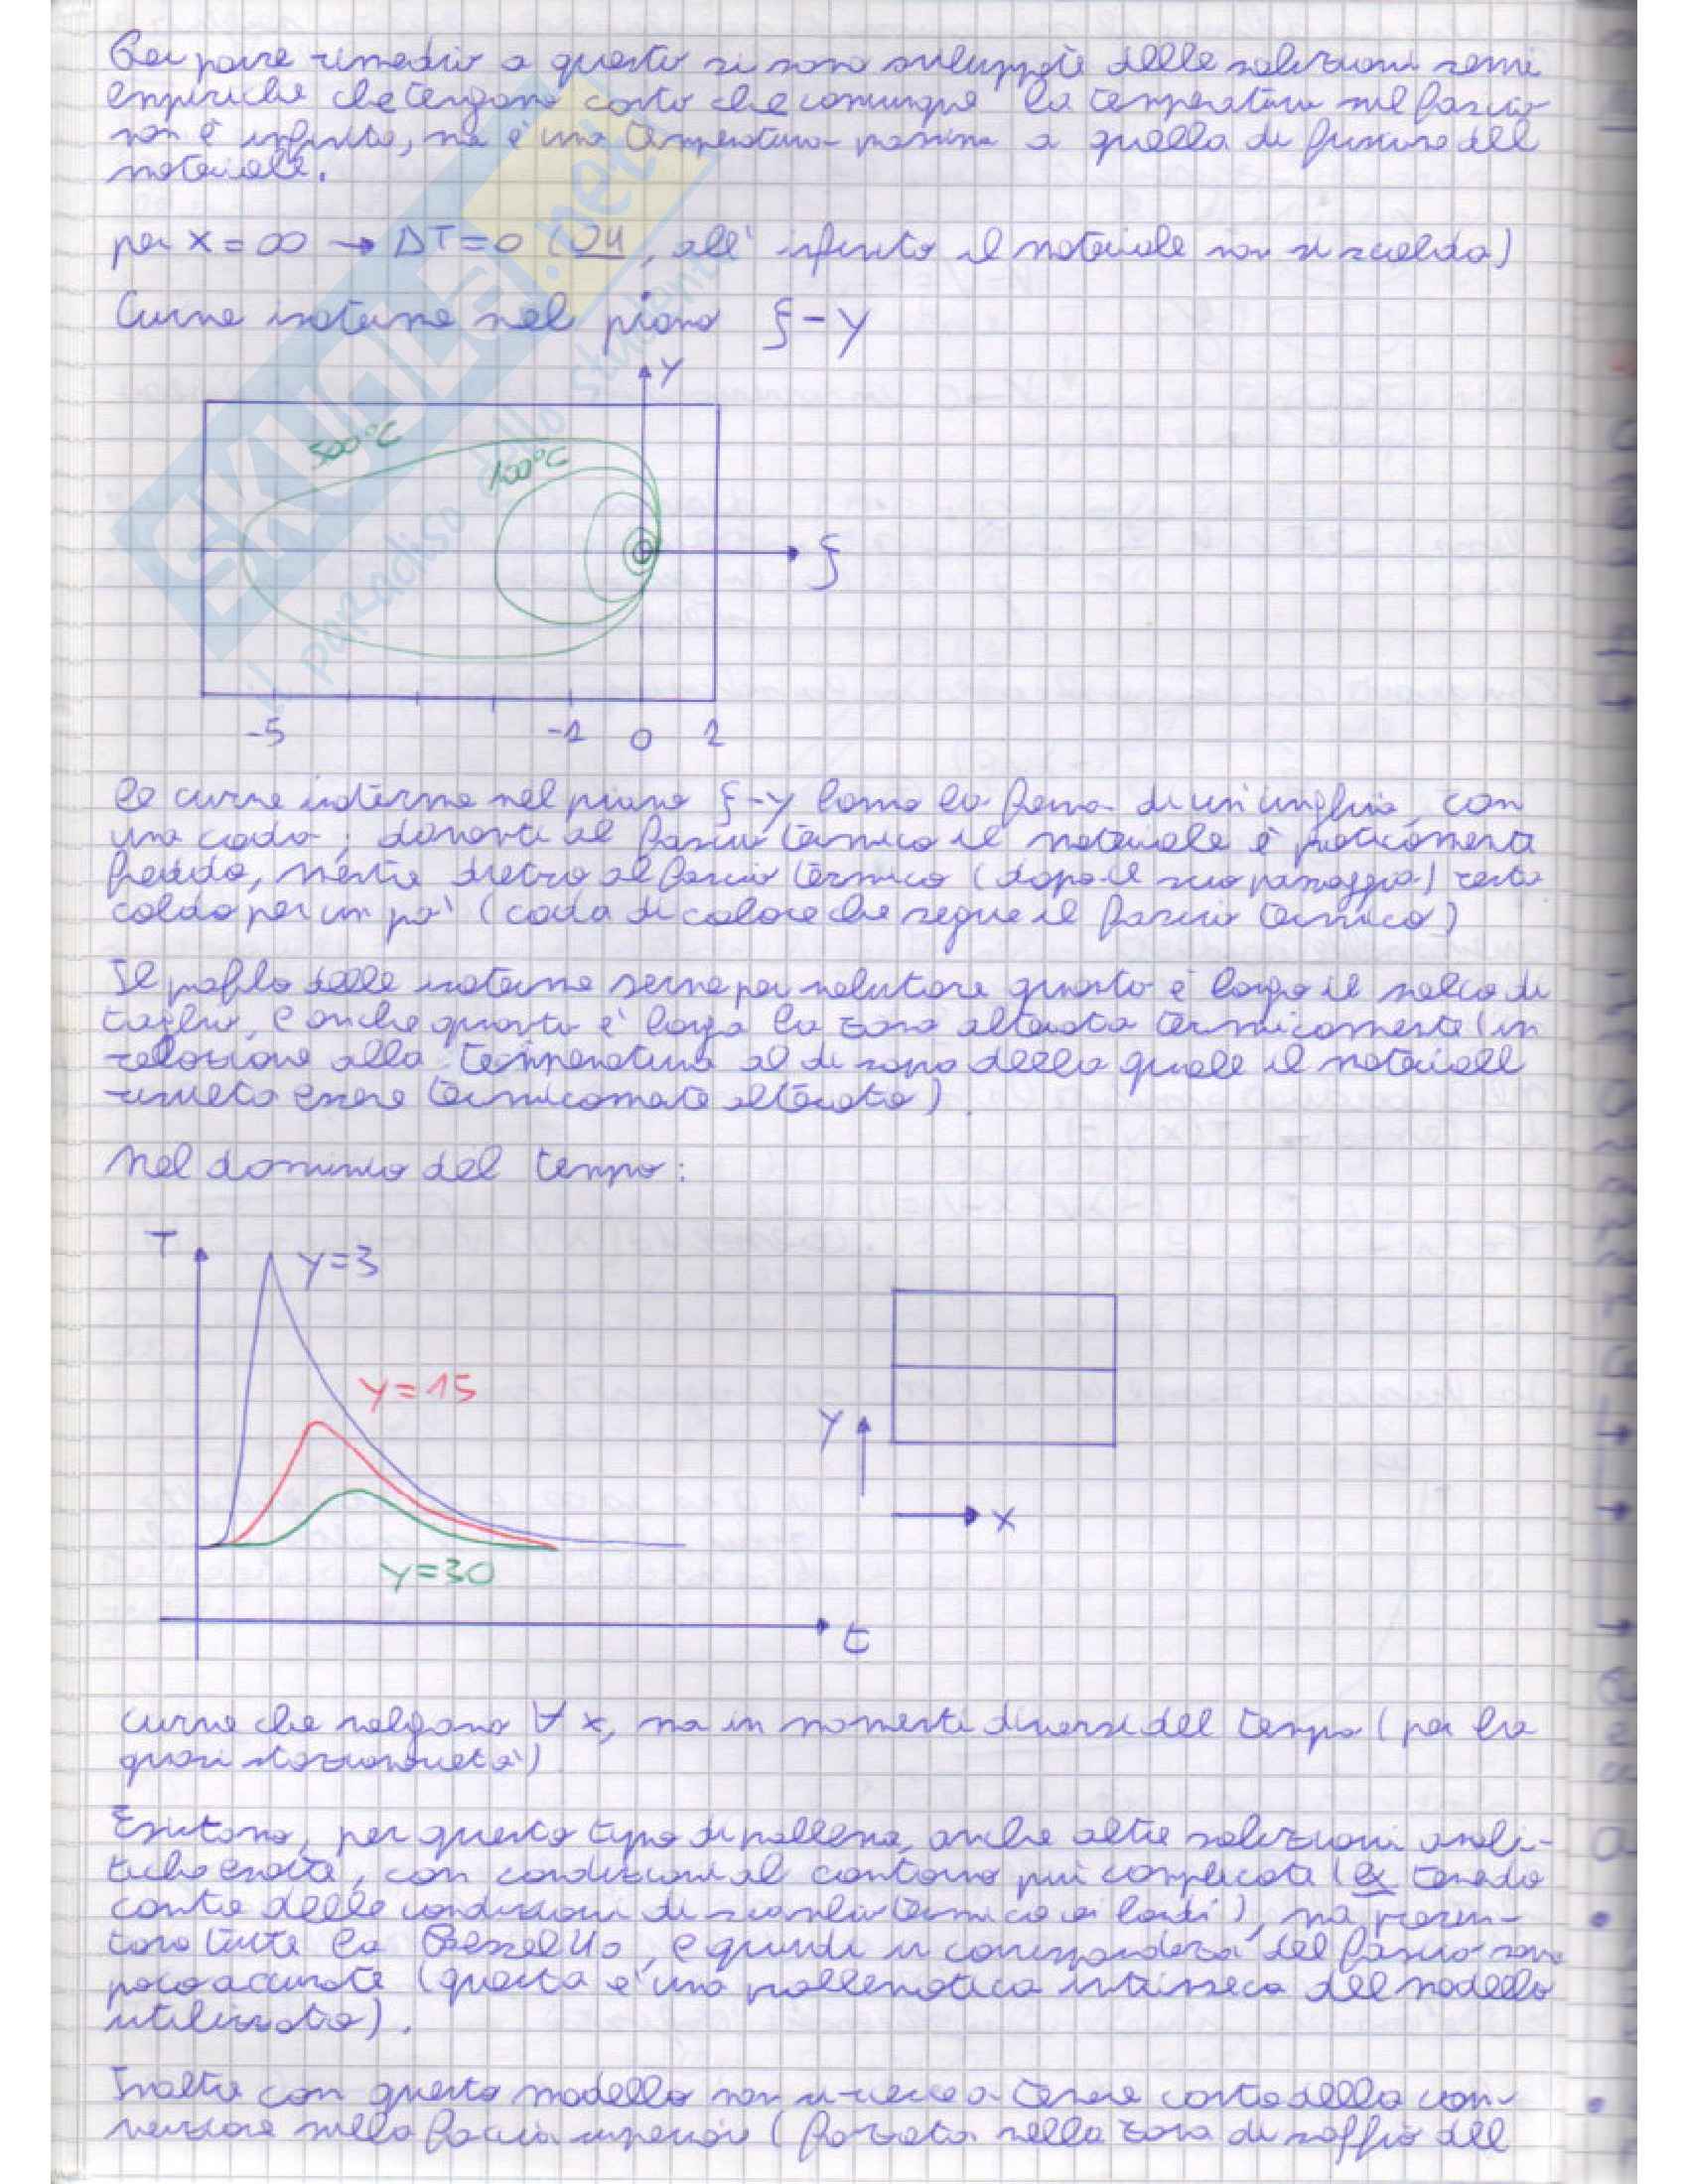 Per porre rimedio a questo si sono sviluppate delle soluzioni semi
empiriche che tengano conto che comunque la temperatura nel fascio
non è infinita, ma è una temperatura prossima a quella di fusione del
materiale.
per x = ∞ → ΔT = 0 (OK, all'infinito il materiale non si scalda)
Curve isoterme nel piano ξ - y
y
500°C
100°C
ξ
-5 -1 0 1
Le curve isoterme nel piano ξ-y hanno la forma di un'unghia, con
una coda; davanti al fascio termico il materiale è praticamente
freddo, mentre dietro al fascio termico (dopo il suo passaggio) resta
caldo per un po' (coda di calore che segue il fascio termico)
Il profilo delle isoterme serve per valutare quanto è largo il solco di
taglio, e anche quanto è larga la zona alterata termicamente (in
relazione alla temperatura al di sopra della quale il materiale
risulta essere termicamente alterato).
Nel dominio del tempo:
T
y=3
y=15
y=30
t
y
x
curve che valgono ∀ x, ma in momenti diversi del tempo (per la
quasi stazionarietà)
Esistono, per questo tipo di problema, anche altre soluzioni anali-
tiche esatte, con condizioni al contorno più complicate (ex tenendo
conto delle condizioni di scambio termico ai bordi), ma presen-
tano tutte la Bessel U0, e quindi in corrispondenza del fascio sono
poco accurate (questa è una problematica intrinseca del modello
utilizzato).
Inoltre con questo modello non si riesce a tenere conto della con-
vezione sulla faccia superiore (forzata nella zona di soffio del
SKUOLA.net
il paradiso dello studente